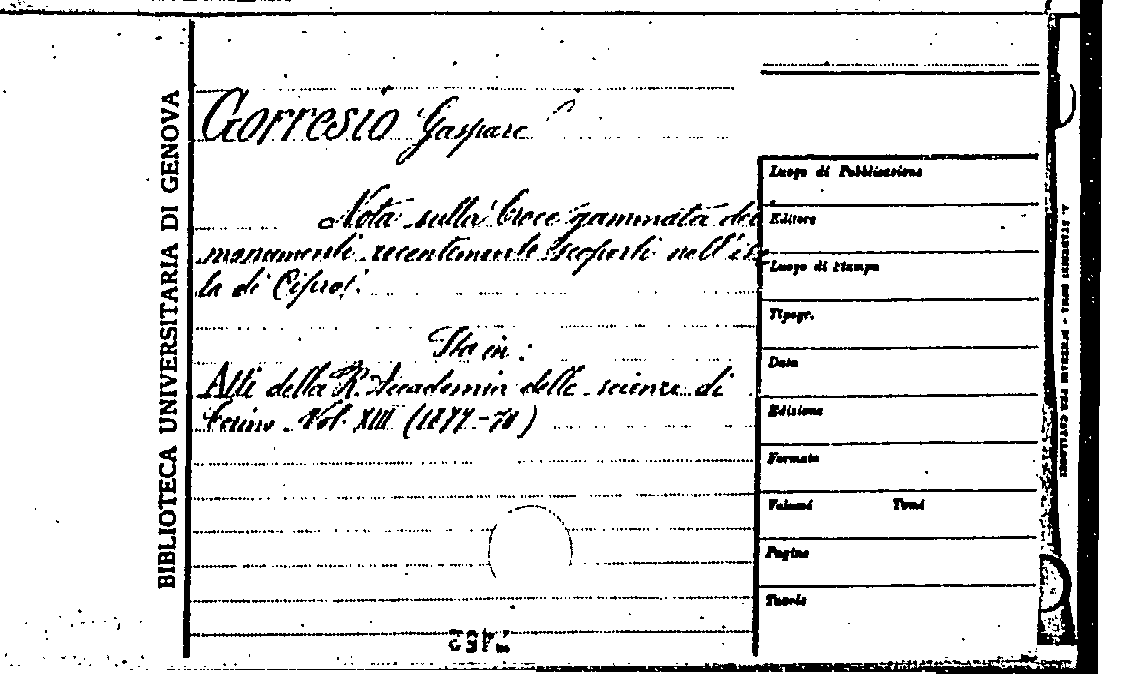 BIBLIOTECA UNIVERSITARIA DI GENOVA
Gorresio Gaspare
Nota sulla Croce gammata dei
monumenti recentemente scoperti nell'iso
la di Cipro.
Sta in:
Atti della R. Accademia delle scienze di
Torino. Vol. XIII (1877-78)
Luogo di Pubblicazione
Editore
Luogo di Stampa
Tipogr.
Data
Edizione
Formato
Volumi Tomi
Pagine
Tavole